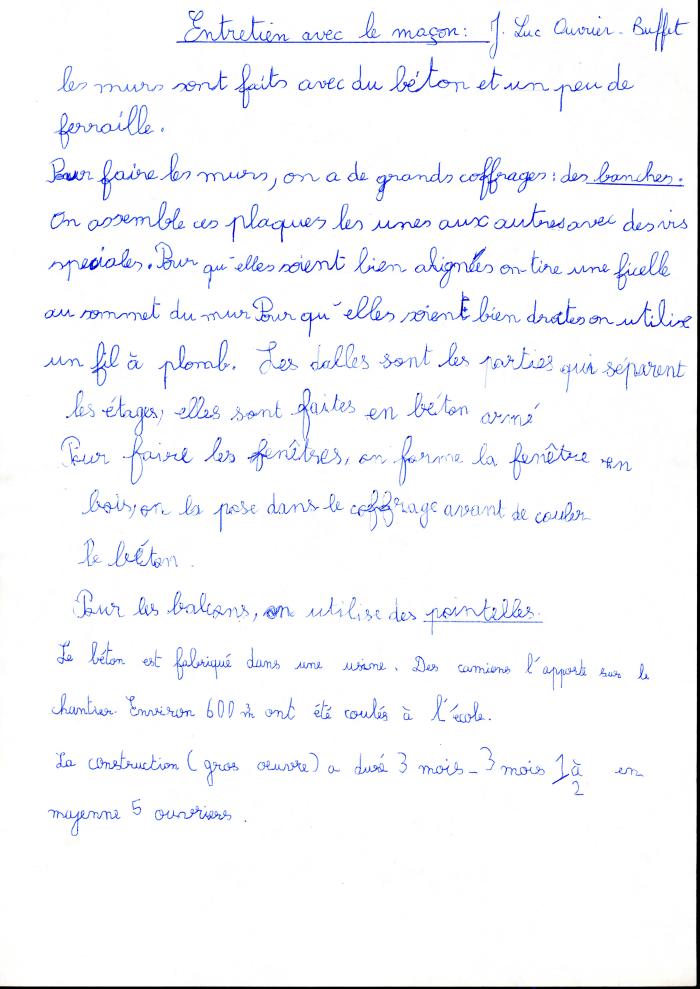 Entretien avec le maçon: J. Luc Ouvrier-Buffet
les murs sont faits avec du béton et un peu de
ferraille.
Pour faire les murs, on a de grands coffrages: des banches.
On assemble ces plaques les unes aux autres avec des vis
speciales. Pour qu'elles soient bien alignées on tire une ficelle
au sommet du mur Pour qu'elles soient bien droites on utilise
un fil à plomb. Les dalles sont les parties qui séparent
les étages, elles sont faites en béton armé
Pour faire les fenêtres, on forme la fenêtre en
bois, on la pose dans le coffrage avant de couler
le béton.
Pour les balcons, on utilise des pointelles.
Le béton est fabriqué dans une usine. Des camions l'apporte sur le
chantier. Environ 600 m³ ont été coulés à l'école.
La construction (gros oeuvre) a duré 3 mois - 3 mois 1/2 à en
moyenne 5 ouvriers.